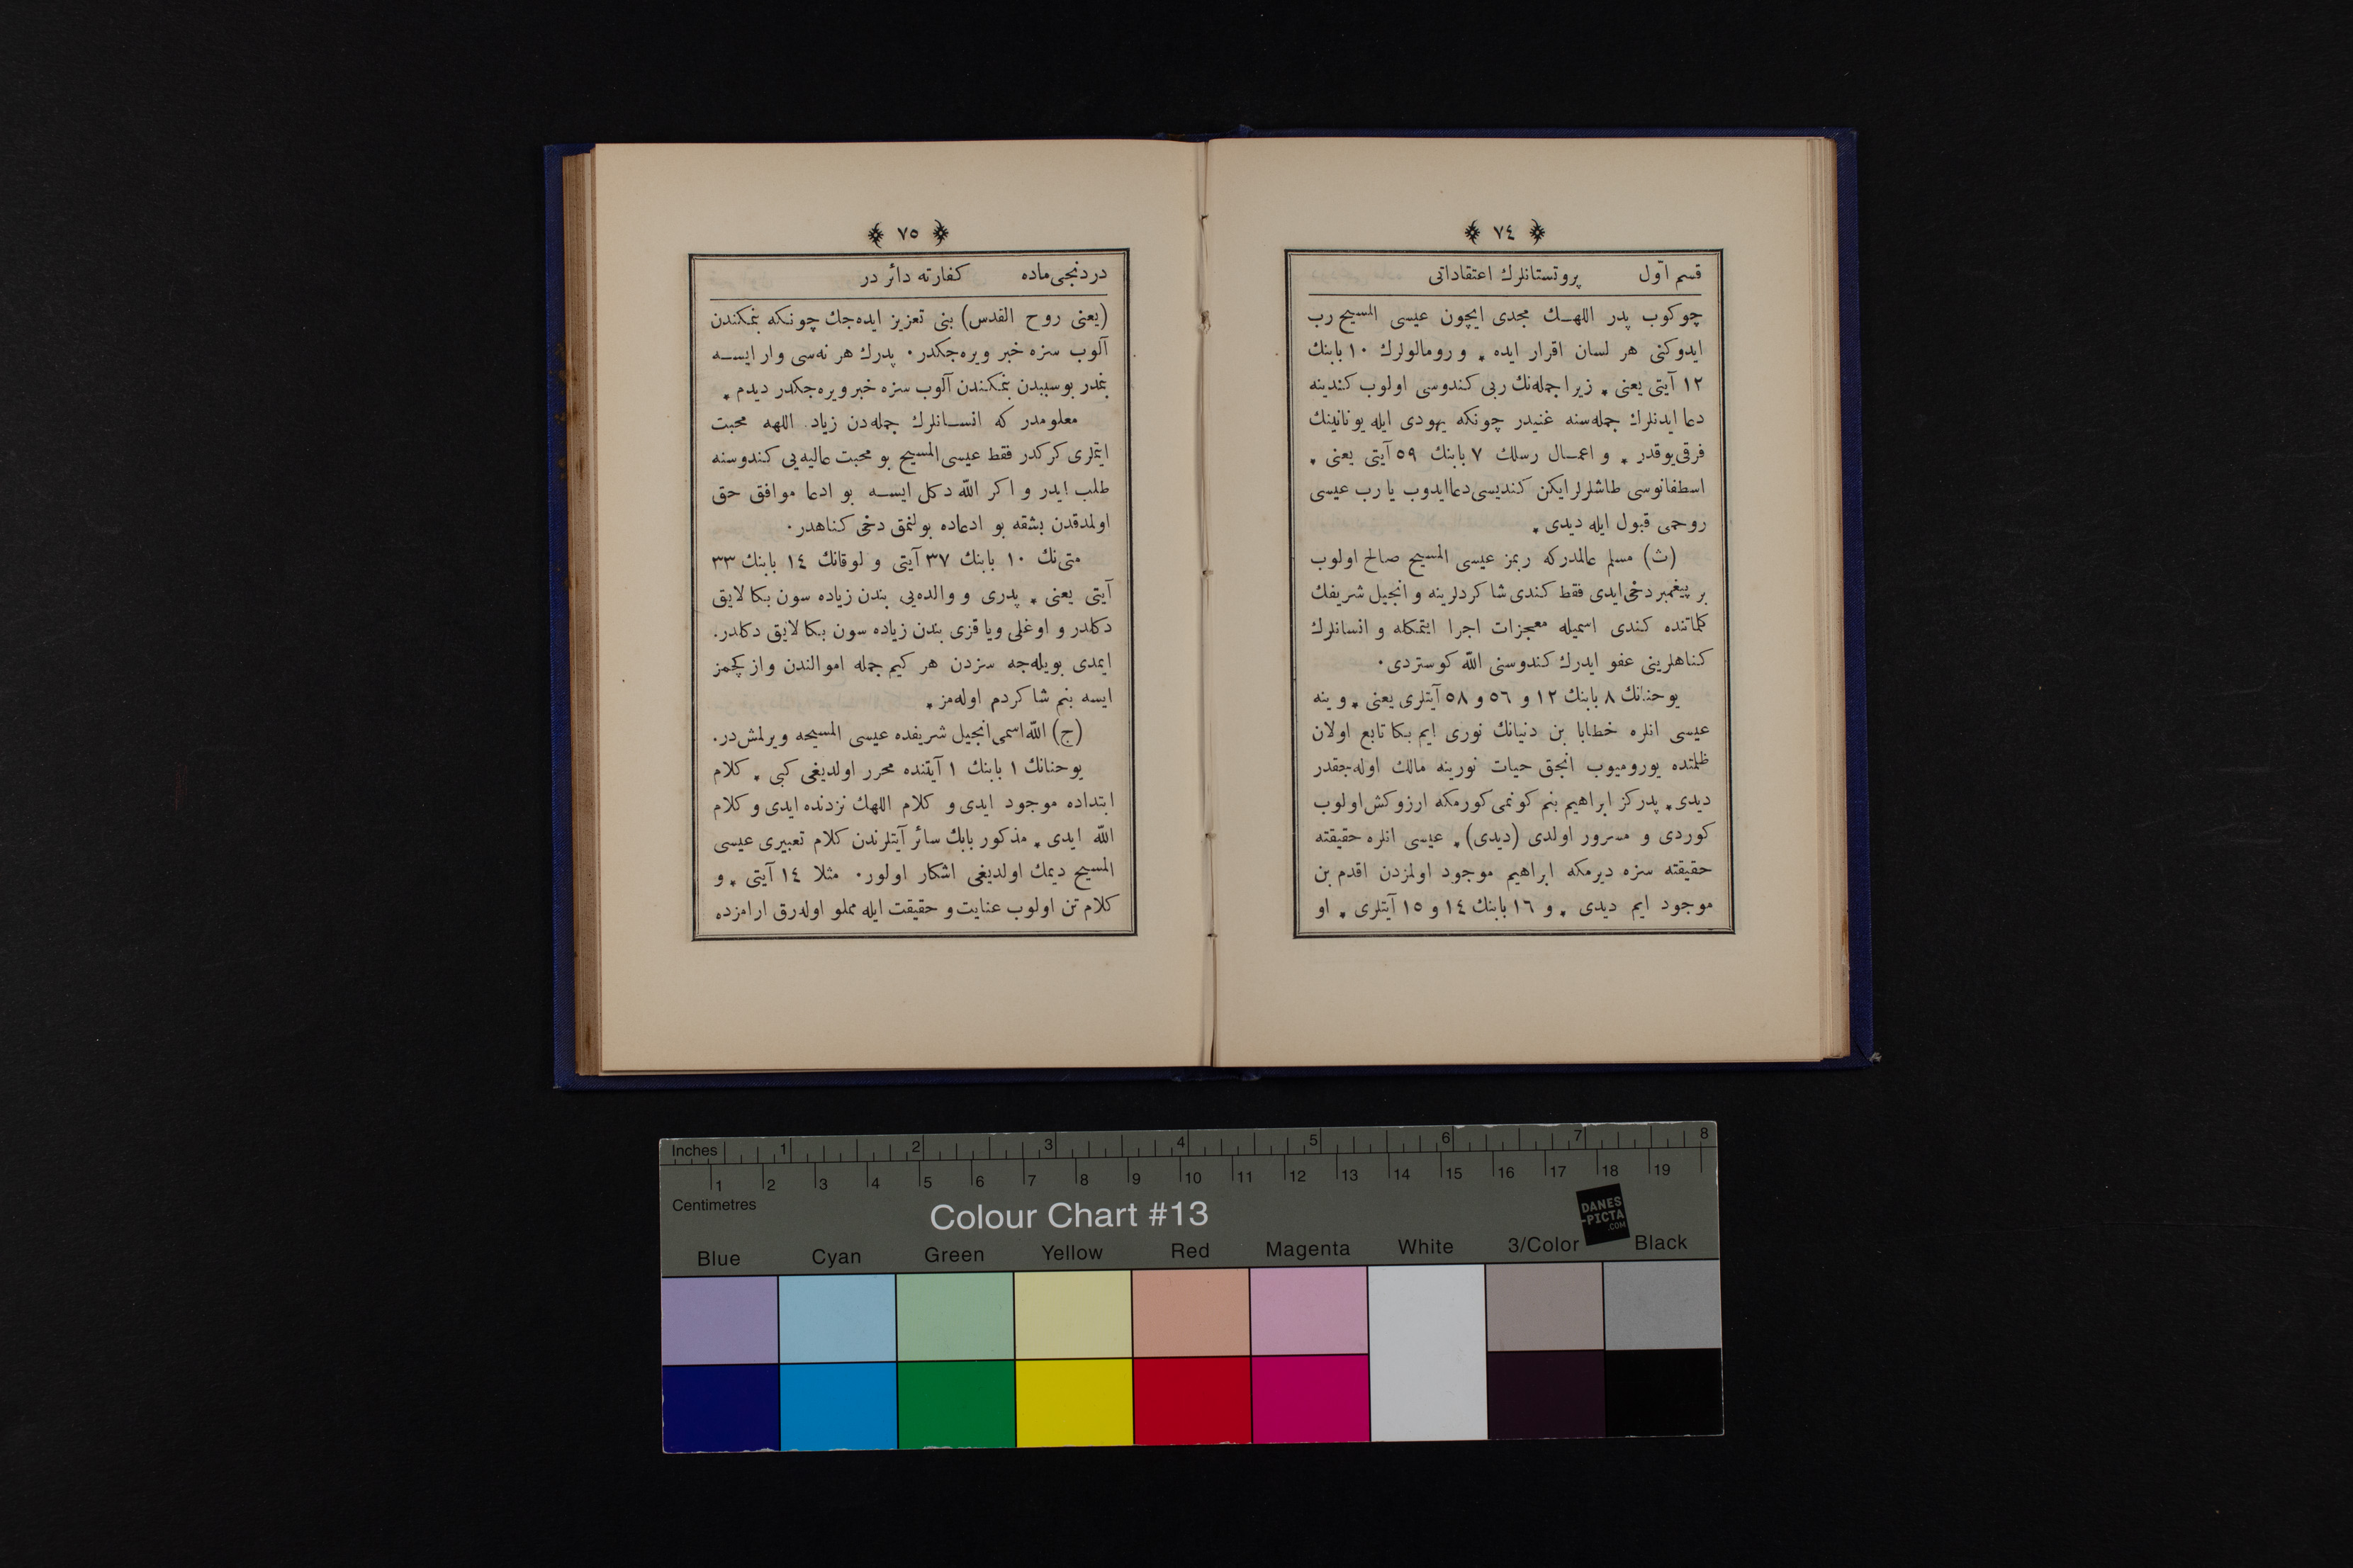 ٧٤
قسم اوّل پروتستانلرك اعتقاداتی
چوكوب پدر اللهـك مجدی ایچون عیسی المسیح رب
ایدوكنی هر لسان اقرار ایده ٭ و رومالولرك ١٠ بابنك
١٢ آیتی یعنی ٭ زیرا جمله‌نك ربی كندوسی اولوب كندینه
دعا ایدنلرك جمله‌سنه غنیدر چونكه یهودی ایله یونانینك
فرقی یوقدر ٭ و اعمـال رسلك ٧ بابنك ٥٩ آیتی یعنی ٭
اسطفانوسی طاشلرلر ایكن كندیسی دعا ایدوب یا رب عیسی
روحمی قبول ایله دیدی ٭
(ث) مسلم عالمدركه ربمز عیسی المسیح صالح اولوب
بر پیغمبر دخی ایدی فقط كندی شاكردلرینه و انجیل شریفك
كلماتنده كندی اسمیله معجزات اجرا ایتمكله و انسانلرك
كناهلرینی عفو ایدرك كندوسنی الله كوستردی٠
یوحنانك ٨ بابنك ١٢ و ٥٦ و ٥٨ آیتلری یعنی ٭ و ینه
عیسی انلره خطابا بن دنیانك نوری ایم بكا تابع اولان
ظلمتده یورومیوب انجق حیات نورینه مالك اوله‌جقدر
دیدی٭ پدركز ابراهیم بنم كونمی كورمكه ارزوكش اولوب
كوردی و مسرور اولدی (دیدی) ٭ عیسی انلره حقیقته
حقیقته سزه دیرمكه ابراهیم موجود اولمزدن اقدم بن
موجود ایم دیدی ٭ و ١٦ بابنك ١٤ و ١٥ آیتلری ٭ او
٧٥
دردنجی ماده كفارته دائر در
(یعنی روح القدس) بنی تعزیز ایده‌جك چونكه بنمكندن
آلوب سزه خبر ویره‌جكدر٠ پدرك هر نه‌سی وار ایسـه
بنمدر بوسببدن بنمكندن آلوب سزه خبر ویره‌جكدر دیدم ٭
معلومدر كه انسـانلرك جمله‌دن زیاد اللهه محبت
ایتملری كركدر فقط عیسی المسیح بو محبت عالیه‌یی كندوسنه
طلب ایدر و اكر الله دكل ایسـه بو ادعا موافق حق
اولمدقدن بشقه بو ادعاده بولنمق دخی كناهدر٠
متی‌نك ١٠ بابنك ٣٧ آیتی و لوقانك ١٤ بابنك ٣٣
آیتی یعنی ٭ پدری و والده‌یی بندن زیاده سون بكا لایق
دكلدر و اوغلی ویا قزی بندن زیاده سون بكا لایق دكلدر.
ایمدی بویله‌جه سزدن هر كیم جمله اموالندن واز كچمز
ایسه بنم شاكردم اوله‌مز ٭
(ج) الله اسمی انجیل شریفده عیسی المسیحه ویرلمش‌در.
یوحنانك ١ بابنك ١ آیتنده محرر اولدیغی كبی ٭ كلام
ابتداده موجود ایدی و كلام اللهك نزدنده ایدی و كلام
الله ایدی ٭ مذكور بابك سائر آیتلرندن كلام تعبیری عیسی
المسیح دیمك اولدیغی اشكار اولور٠ مثلا ١٤ آیتی ٭ و
كلام تن اولوب عنایت و حقیقت ایله مملو اوله‌رق ارامزده
Inches 1 2 3 4 5 6 7 8
1 2 3 4 5 6 7 8 9 10 11 12 13 14 15 16 17 18 19
Centimetres
Colour Chart #13
DANES
-PICTA
.COM
Blue Cyan Green Yellow Red Magenta White 3/Color Black